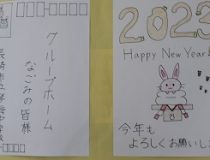 グループホーム
なごみの皆様
2023
Happy New Year!
今年も
よろしくお願いし